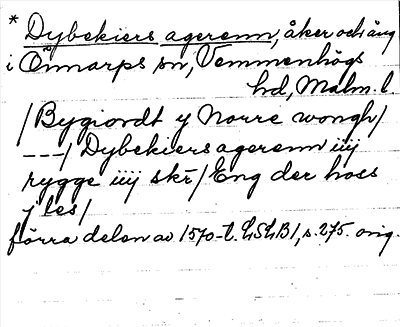 * Dybekiers agerenn, åker och äng
i Önnarps sn, Vemmenhögs
hd, Malm. l.
/Bygiordt y Norre wongh/
---/Dybekiers agerenn iiij
rygge iiij skr/Eng der hoss
j les/
förra delen av 1570-t. LSLB1, s. 275. orig.